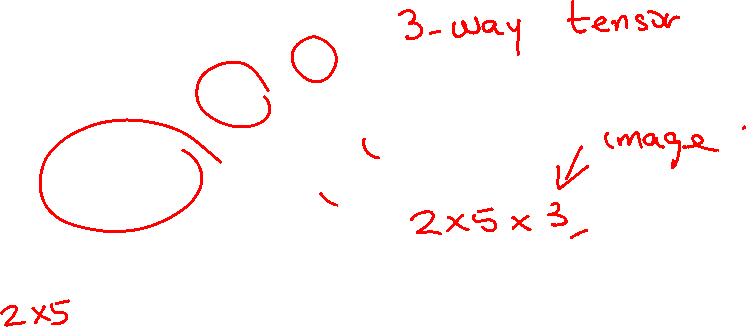 3-way tensor
image
2×5×3
2×5